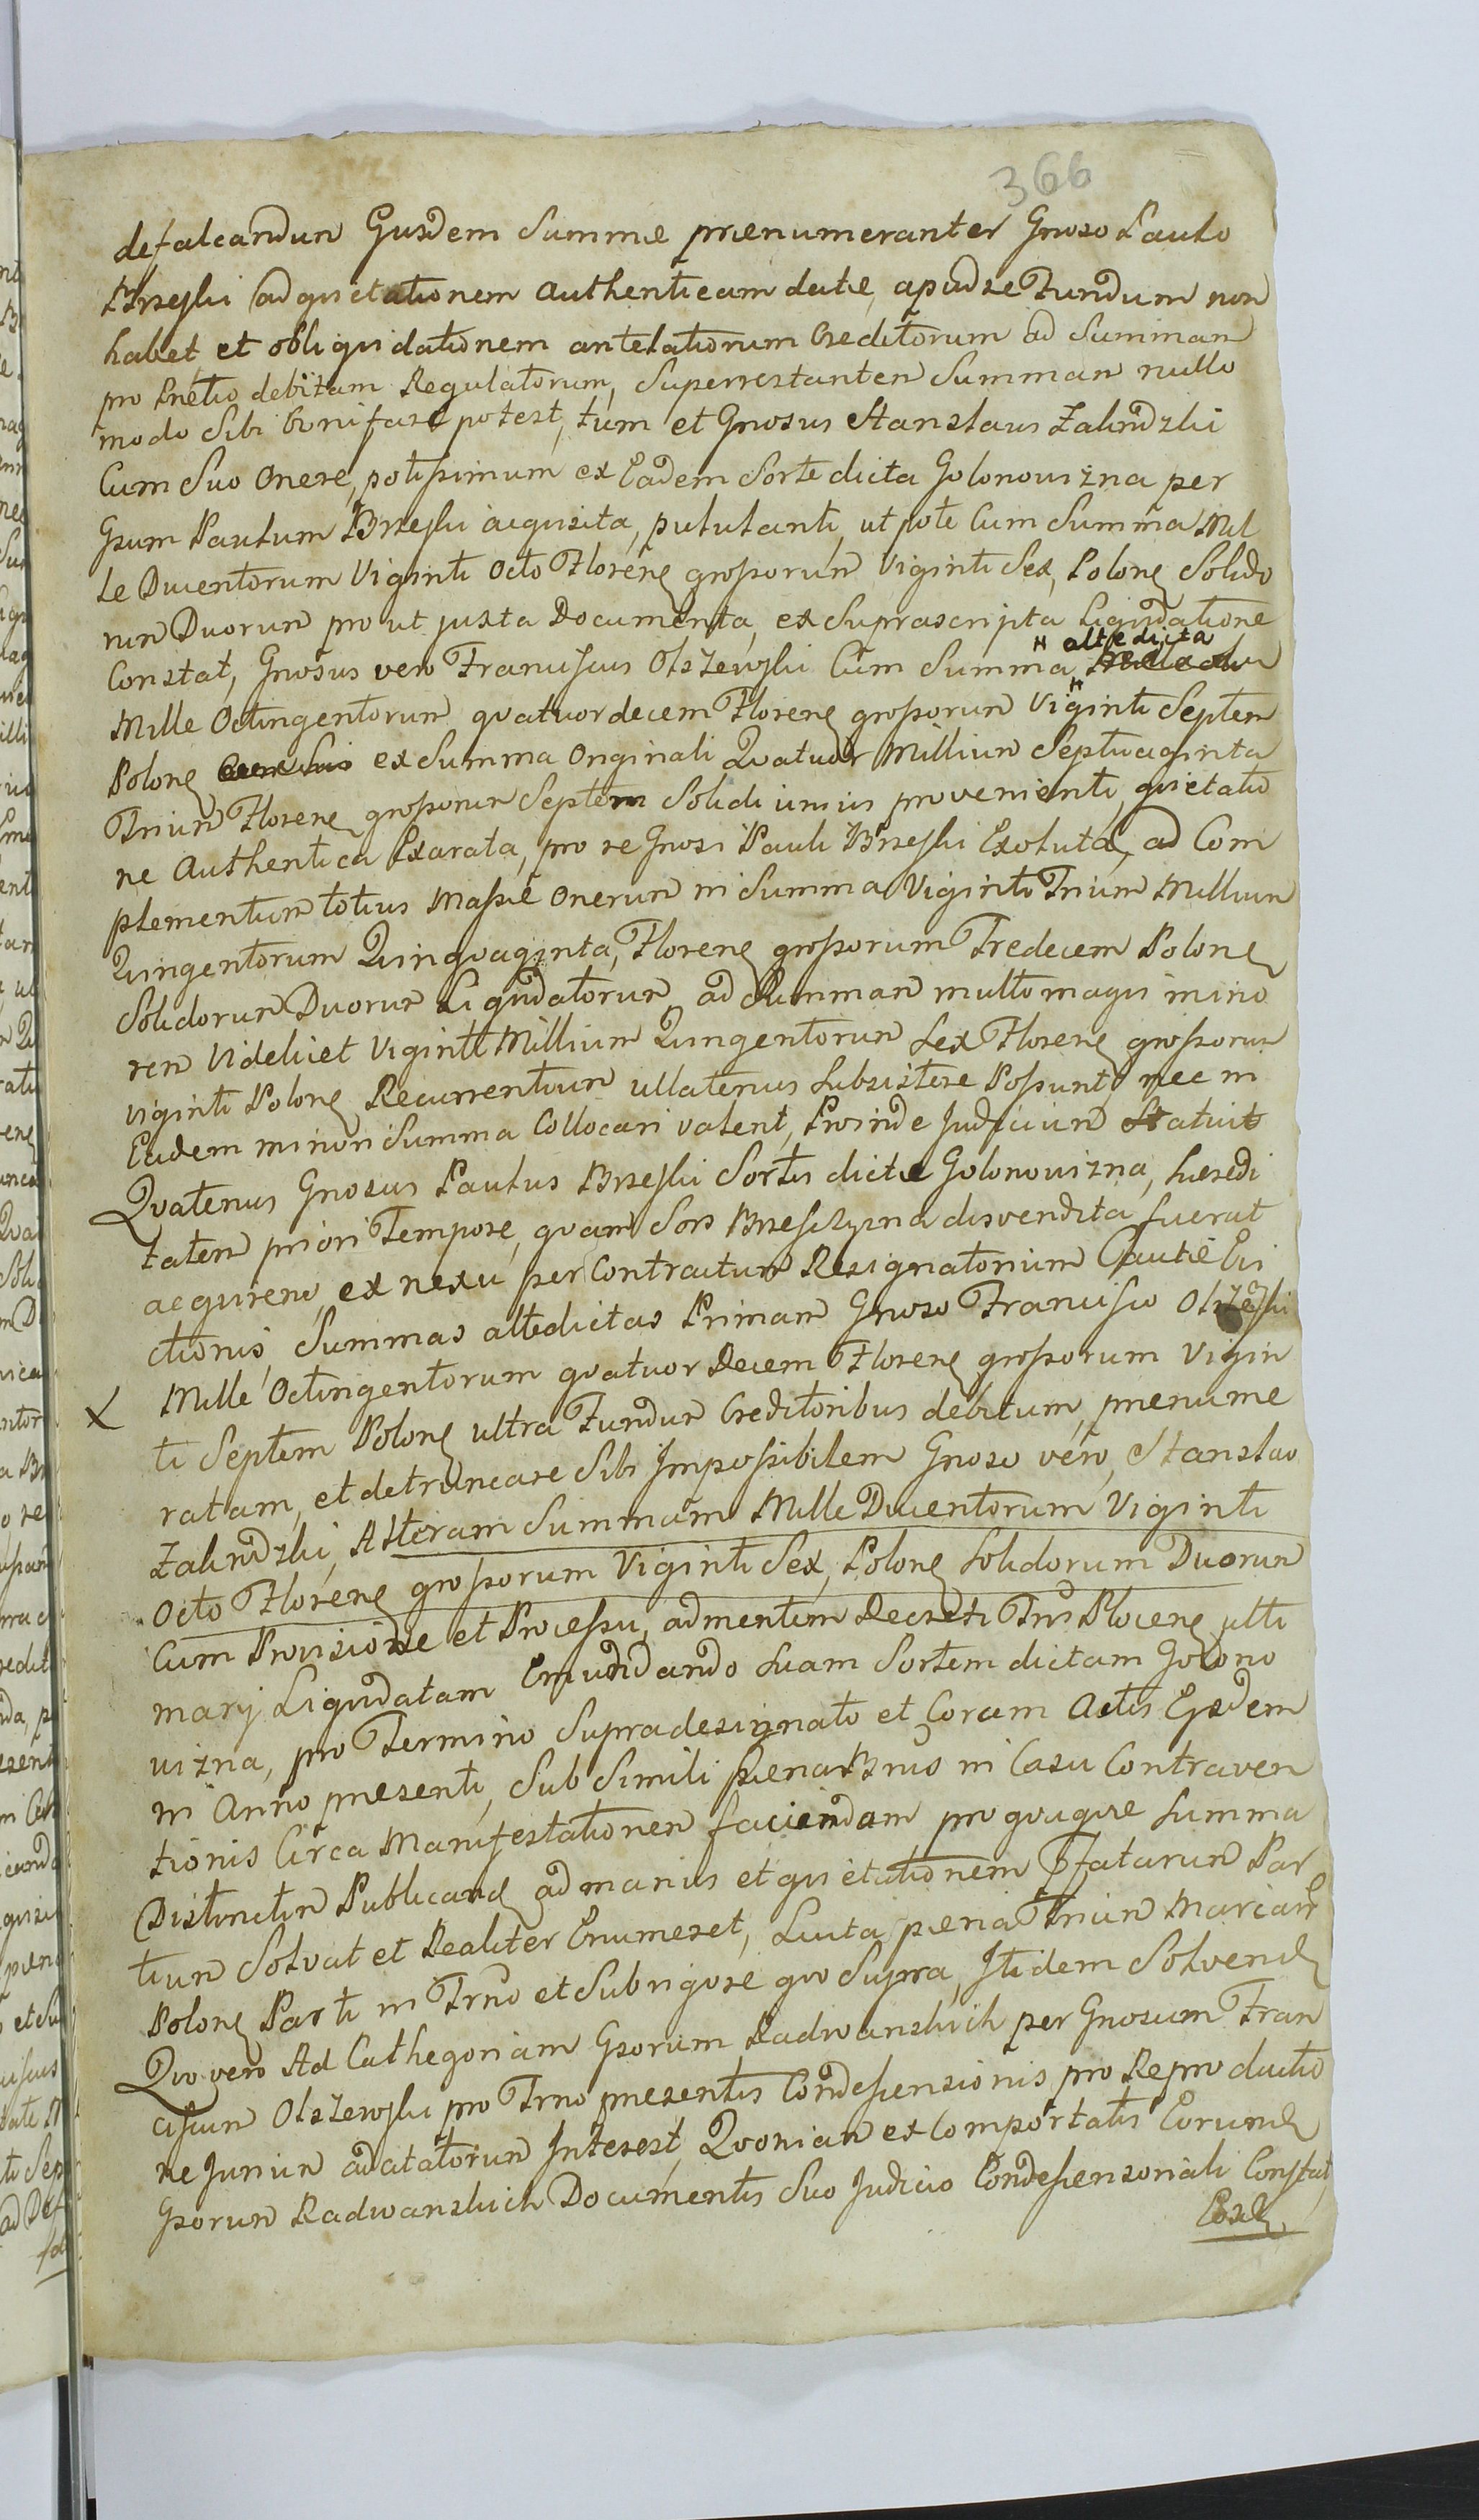 366
defalcandum Ejusdem Summæ prænumeranter Gnoso Paulo
Brzeski ad quietationem authenticam datæ, apud se Fundum non
habet, et obliquidationem antelationum Creditorum ad Summam
pro Prætio debitam Regulatorum, Superrestantem Summam nullo
modo Sibi bonifare potest, tum et Gnosus Stanslaus Zalindzki
Cum Suo Onere, potissimum ex Eadem Sorte dicta Golonowizna per
Gsum Paulum Brzeski acquisita, pululanti, ut pote Cum Summa Mil
le Ducentorum Viginti Octo Floreng grossorum Viginti Sex, Polong Solido
rum Duorum pro ut juxta Documenta, ex Suprascripta Liquidatione
Constat, Gnosus vero Franciscus Olszewski Cum Summa altedicta
Mille Octingentorum quatuordecem Floreng grossorum Viginti Septem
Polong ex Summa Originali Quatuor Millium Septuaginta
Trium Floreng grossorum Septem Solidi unius provenienti, quietatio
ne Authentica Exarata, pro re Gnosi Pauli Brzeski Exoluta, ad Com
plementum totius Massæ Onerum in Summa Viginti Trium Millium
Quingentorum Quinquaginta, Floreng grossorum Tredecem Polong
Solidorum Duorum Liquidatorum, ad Summam multo magis mino
rem Videlicet Viginti Millium Quingentorum Sex Floreng grossorum
viginti Polong Recurrentium ullatenus Subsistere Possunt, nec in
Eadem minori Summa Collocari valent, Proinde Judicium Statuit
Quatenus Gnosus Paulus Brzeski Sortis dictæ Golonowizna, hæredi
tatem priori Tempore, quam Sors Brzescizyna disvendita fuerat
acquirens, ex nexu per Contractum Resignatorium Cautæ Evi
ctionis, Summas altedictas Primam Gnoso Francisco Olszeski
X Mille Octingentorum quatuor Decem Floreng grossorum Vigin
ti Septem Polong ultra Fundum Creditoribus debitum, prænume
ratam, et detruncare Sibi Impossibilem Gnoso vero, Stanslao
Zalindzki, Alteram Summam Mille Ducentorum Viginti
Octo Floreng grossorum Viginti Sex, Polong Solidorum Duorum
Cum Provisione et Processu, ad mentem Decreti Trns Ploceng ulti
marj Liquidatam Emundidando Suam Sortem dictam Golono
wizna, pro Termino Supradesignato et Coram Actis Ejsdem
in Anno præsenti, Sub Simili pæna Bnis in Casu Contraven
tionis Circa Manifestationem faciendam pro quaqве Summa
Distinctim Publicand ad manus et quietationem Pfatarum Par
tium Solvat et Realiter Enumeret, Luita pæna Trium Marcarum
Polong Parti in Trno et Sub rigore quo Supra, Itidem Solvend
Quo vero Ad Cathegoriam Gsorum Radwanskich per Gnosum Fran
ciscum Olszewski pro Trno præsentis Condescensionis pro Reproductio
ne Jurium adcitatorum Interest, Quoniam ex Comportatis Eorund
Gsorum Radwanskich Documentis Suo Judicio Condescensoriali Constat,
Eosd